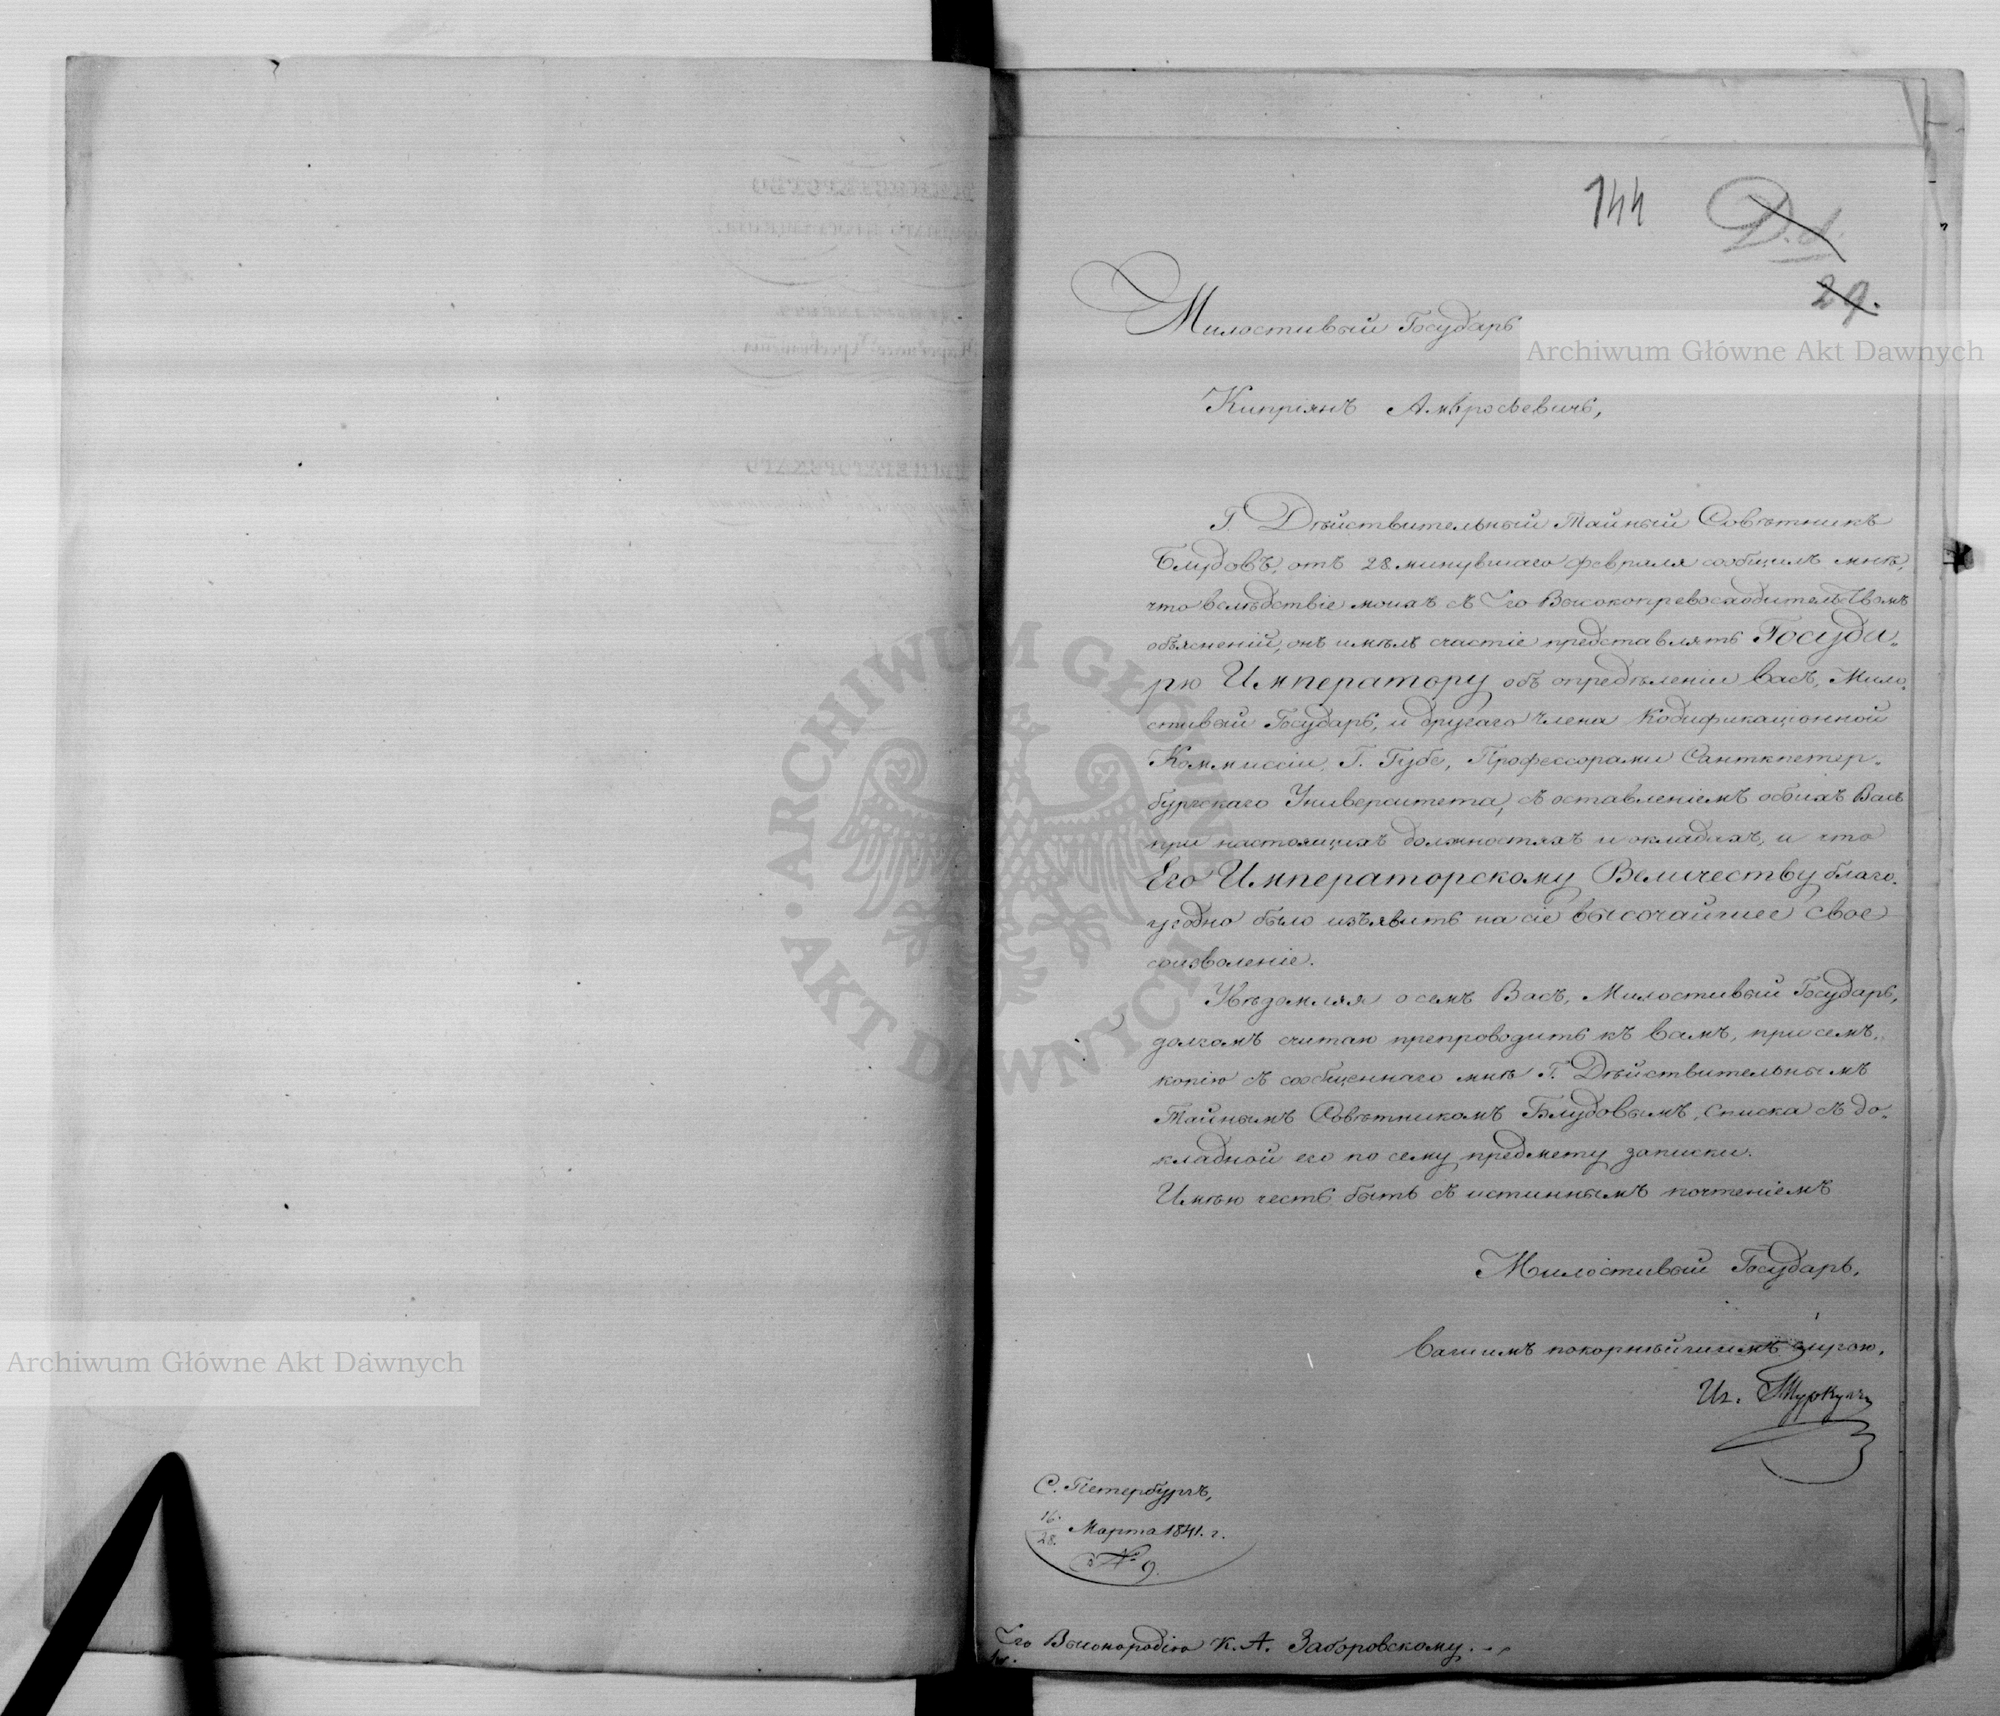 144
D. d.
29.
Милостивый Государь
Кипріянъ Амвросьевичъ,
Г. Дѣйствительный Тайный Совѣтникъ
Блудовъ, отъ 28 минувшаго февраля сообщилъ мнѣ,
что вслѣдствіе моихъ съ Его Высокопревосходительствомъ
объясненій, онъ имѣлъ счастіе представлять Госуда-
рю Императору объ опредѣленіи Васъ, Мило-
стивый Государь, и другаго члена Кодификаціонной
Коммиссіи, Г. Губе, Профессорами Санктпетер-
бургскаго Университета, съ оставленіемъ обоихъ Васъ
при настоящихъ должностяхъ и окладахъ, и что
Его Императорскому Величеству благо-
угодно было изъявить на сіе высочайшее свое
соизволеніе.
Увѣдомляя о семъ Васъ, Милостивый Государь,
долгомъ считаю препроводить къ Вамъ, при семъ,
копію съ сообщеннаго мнѣ Г. Дѣйствительнымъ
Тайнымъ Совѣтникомъ Блудовымъ, списка съ до-
кладной его по сему предмету записки.
Имѣю честь быть съ истиннымъ почтеніемъ
Милостивый Государь,
Вашимъ покорнѣйшимъ слугою,
Иг. Туркулъ
С. Петербургъ,
16/28 Марта 1841. г.
№ 9.
Его Высокородію К. А. Заборовскому.
Archiwum Główne Akt Dawnych
Archiwum Główne Akt Dawnych
ARCHIWUM GŁÓWNE AKT DAWNYCH